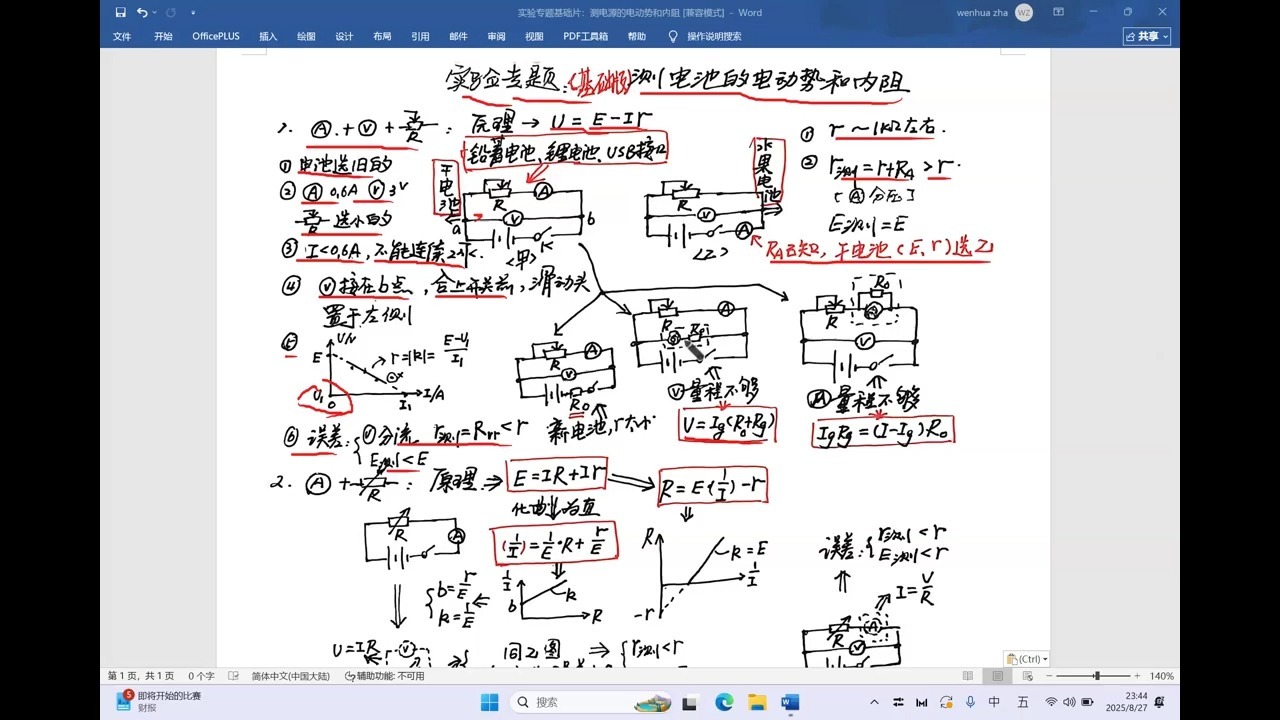 实验专题基础片：测电源的电动势和内阻 [兼容模式] - Word
wenhua zha
WZ
文件 开始 OfficePLUS 插入 绘图 设计 布局 引用 邮件 审阅 视图 PDF工具箱 帮助 操作说明搜索 共享
实验专题：(基础版)测电池的电动势和内阻
1. Ⓐ + Ⓥ + R : 原理 → U = E - Ir
铅蓄电池、锂电池、USB接口
① 电池选旧的
② Ⓐ 0.6A Ⓥ 3V
选小的
③ I<0.6A, 不能连续
④ Ⓥ接在b点, 合上开关前, 滑动头
置于左侧
干电池
R A V a b K
<甲>
水果电池
R V A
<乙>
① r ~ 1kΩ左右.
② r测=r+RA > r.
(Ⓐ分压)
E测=E
RA已知, 干电池(E、r)选乙
⑤ U/V E r=|k|= E-U1/I1
U1 0 I1 I/A
R A V R0
新电池, r太小
R A R0
Ⓥ量程不够
U = Ig(R0+Rg)
R R0 V
Ⓐ量程不够
IgRg = (I-Ig)·R0
⑥ 误差: Ⓥ分流 r测=RVr < r
E测<E
2. Ⓐ + R : 原理 ⇒ E = IR + Ir ⇒ R = E(1/I) - r
化曲为直
(1/I) = 1/E·R + r/E
R A
b = r/E
k = 1/E
1/I b k R
R k = E 1/I -r
误差: r测 < r
E测 < r
I = V/R
R A V
U=IR V
同乙图 ⇒ r测<r
第 1 页，共 1 页 0 个字 简体中文(中国大陆) 辅助功能: 不可用 140%
(Ctrl)
5
即将开始的比赛
财报
搜索
中 五
23:44
2025/8/27